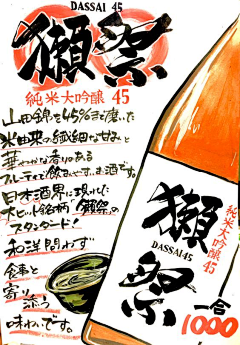 DASSAI 45
獺祭
純米大吟醸 45
山田錦を45%まで磨いた
米由来の繊細な甘みと
華やかな香りのある
フルーティで飲みやすいお酒です。
日本酒界に現れた
大ヒット銘柄「獺祭」の
スタンダード!
和洋問わず
食事と
寄り添う
味わいです。
獺祭
DASSAI 45
純米大吟醸 45
一合
1000